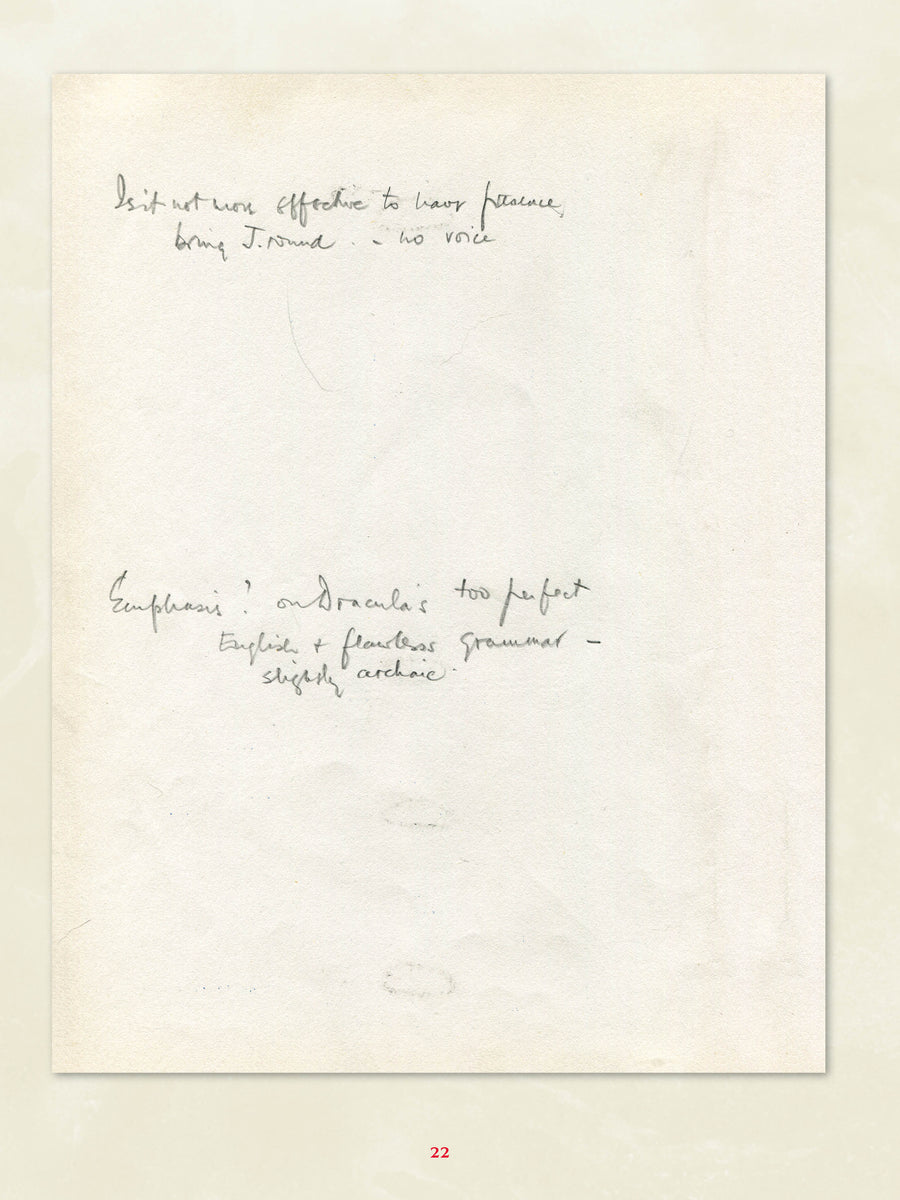 Is it not more effective to have presence,
bring J. round . - no voice
Emphasis! on Dracula's too perfect
English + flawless grammar -
slightly archaic.
22